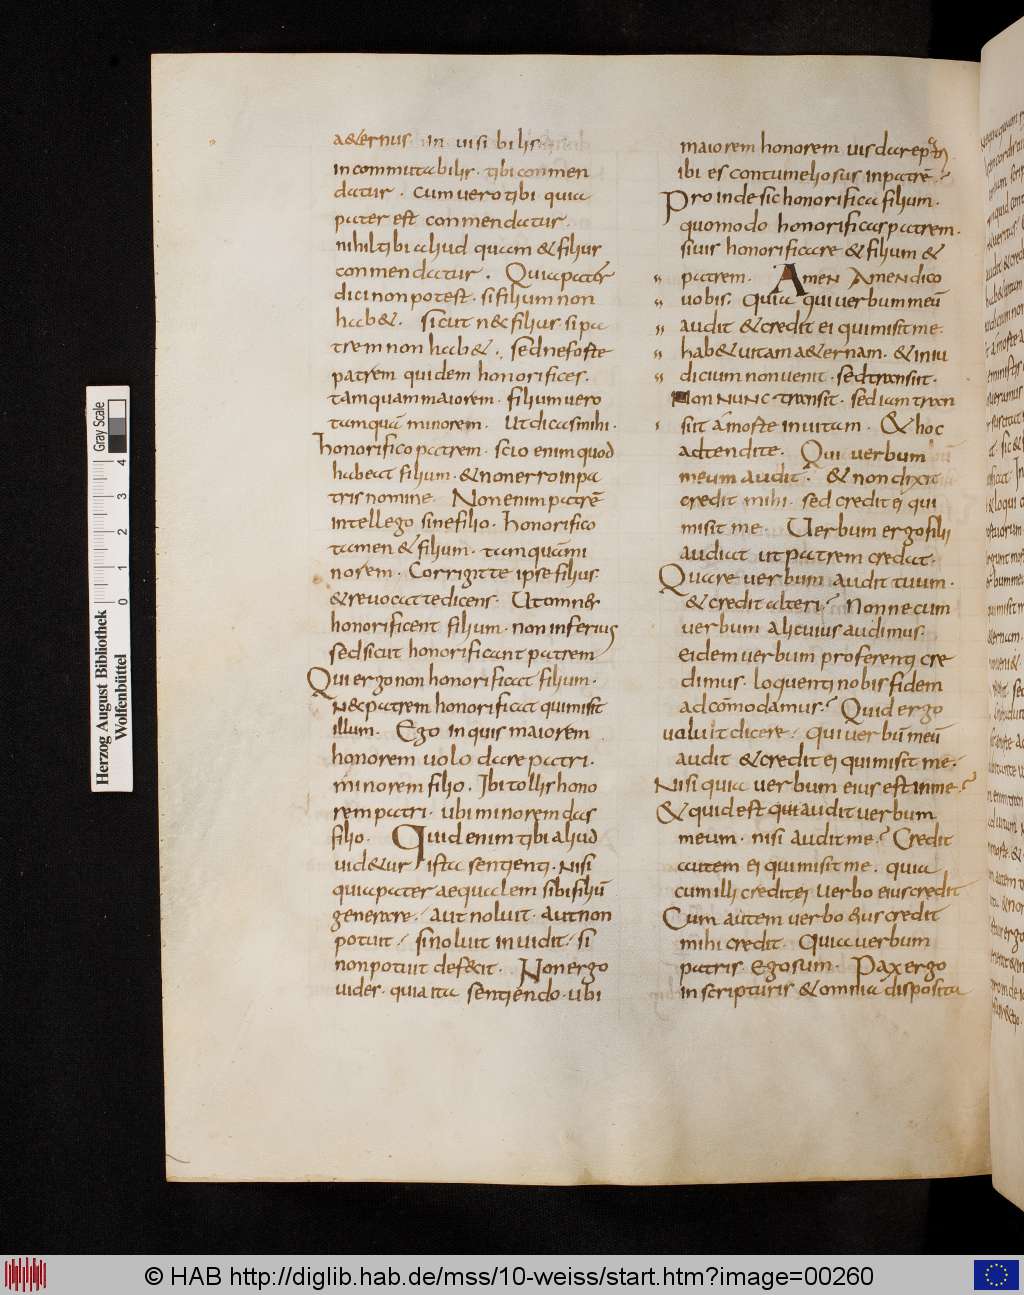 a&ernus. in uisi bilis.
incommutabilis. tibi conmen
datur. Cum uero tibi quia
pater est conmendatur.
nihil tibi aliud quam & filius
conmendatur. Quia pater
dici non potest. si filium non
hab&. sicut n&c filius si pa
trem non hab&. sed ne forte
patrem quidem honorifices.
tamquam maiorem. filium uero
tamquā minorem. Ut dicas mihi.
honorifico patrem. scio enim quod
habeat filium. & non erro in pa
tris nomine. Non enim patrē
intellego sine filio. honorifico
tamen & filium. tamquā mi
norem. Corrigit te ipse filius.
& reuocat te dicens. Ut omnes
honorificent filium. non inferius
sed sicut honorificant patrem
Qui ergo non honorificat filium.
N&c patrem honorificat qui misit
illum. Ego inquis maiorem
honorem uolo dare patri.
minorem filio. Ibi tollis hono
rem patri. ubi minorem das
filio. Quid enim tibi aliud
uid&ur ista sentienti. Nisi
quia pater aequalem sibi filiū
generare. aut noluit. aut non
potuit. si noluit inuidit. si
non potuit defecit. Non ergo
uides. quia ita sentiendo. ubi
maiorem honorem uis dare
ibi es contumeliosus in patrē.
Proinde sic honorifica filium.
quomodo honorificas patrem.
si uis honorificare & filium &
patrem. Amen Amen dico
uobis. quia qui uerbum meū
audit & credit ei qui misit me.
hab& uitam a&ernam. & in iu
dicium non uenit. sed transiit.
Non NUNC transit. sed iam tran
siit á morte in uitam. & hoc
adtendite. Qui uerbum
meum audit. & non dixit
credit mihi. sed credit ei qui
misit me. Uerbum ergo filii
audiat ut patrem credat.
Quare uerbum audit tuum.
& credit alteri? Nonne cum
uerbum alicuius audimus.
eidem uerbum proferenti cre
dimus. loquenti nobis fidem
adcōmodamus? Quid ergo
uoluit dicere. qui uerbū meū
audit & credit ei qui misit me.
Nisi quia uerbum eius est in me?
& quid est qui audit uerbum
meum. nisi audit me? Credit
autem ei qui misit me. quia
cum illi credit ei uerbo eius credit
Cum autem uerbo eius credit
mihi credit. Quia uerbum
patris. Ego sum. Pax ergo
in scripturis & omnia disposita
Herzog August Bibliothek
Wolfenbüttel
Gray Scale
0 1 2 3 4
© HAB http://diglib.hab.de/mss/10-weiss/start.htm?image=00260